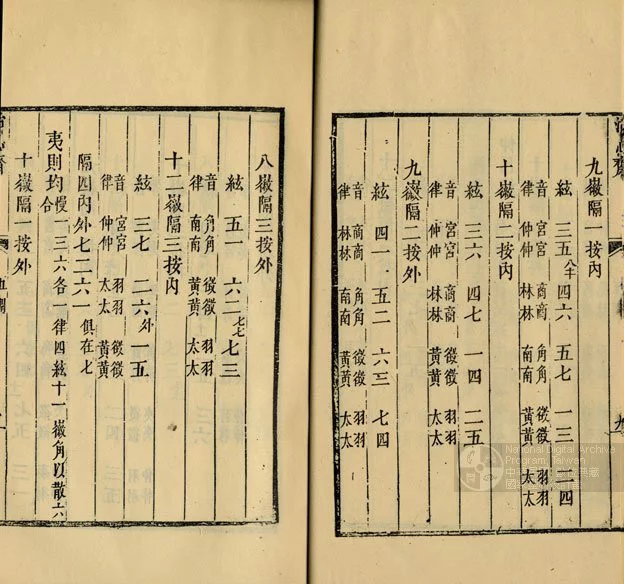 九徽隔一按內
絃 三五 四六 五七 一三 二四
音 宮宮 商商 角角 徵徵 羽羽
律 仲仲 林林 南南 黃黃 太太
十徽隔二按內
絃 三六 四七 一四 二五
音 宮宮 商商 徵徵 羽羽
律 仲仲 林林 黃黃 太太
九徽隔二按外
絃 四一 五二 六三 七四
音 商商 角角 徵徵 羽羽
律 林林 南南 黃黃 太太
八徽隔三按外
絃 五一 六二 七七 七三
音 角角 徵徵 羽羽
律 南南 黃黃 太太
十二徽隔三按內
絃 三七 二六外 一五
音 宮宮 羽羽 徵徵
律 仲仲 太太 黃黃
隔四內外七二六一 俱在七
夷則均慢一三六各一律四絃十一徽角以散六
合
十徽隔一按外
National Digital Archives
Program, Taiwan